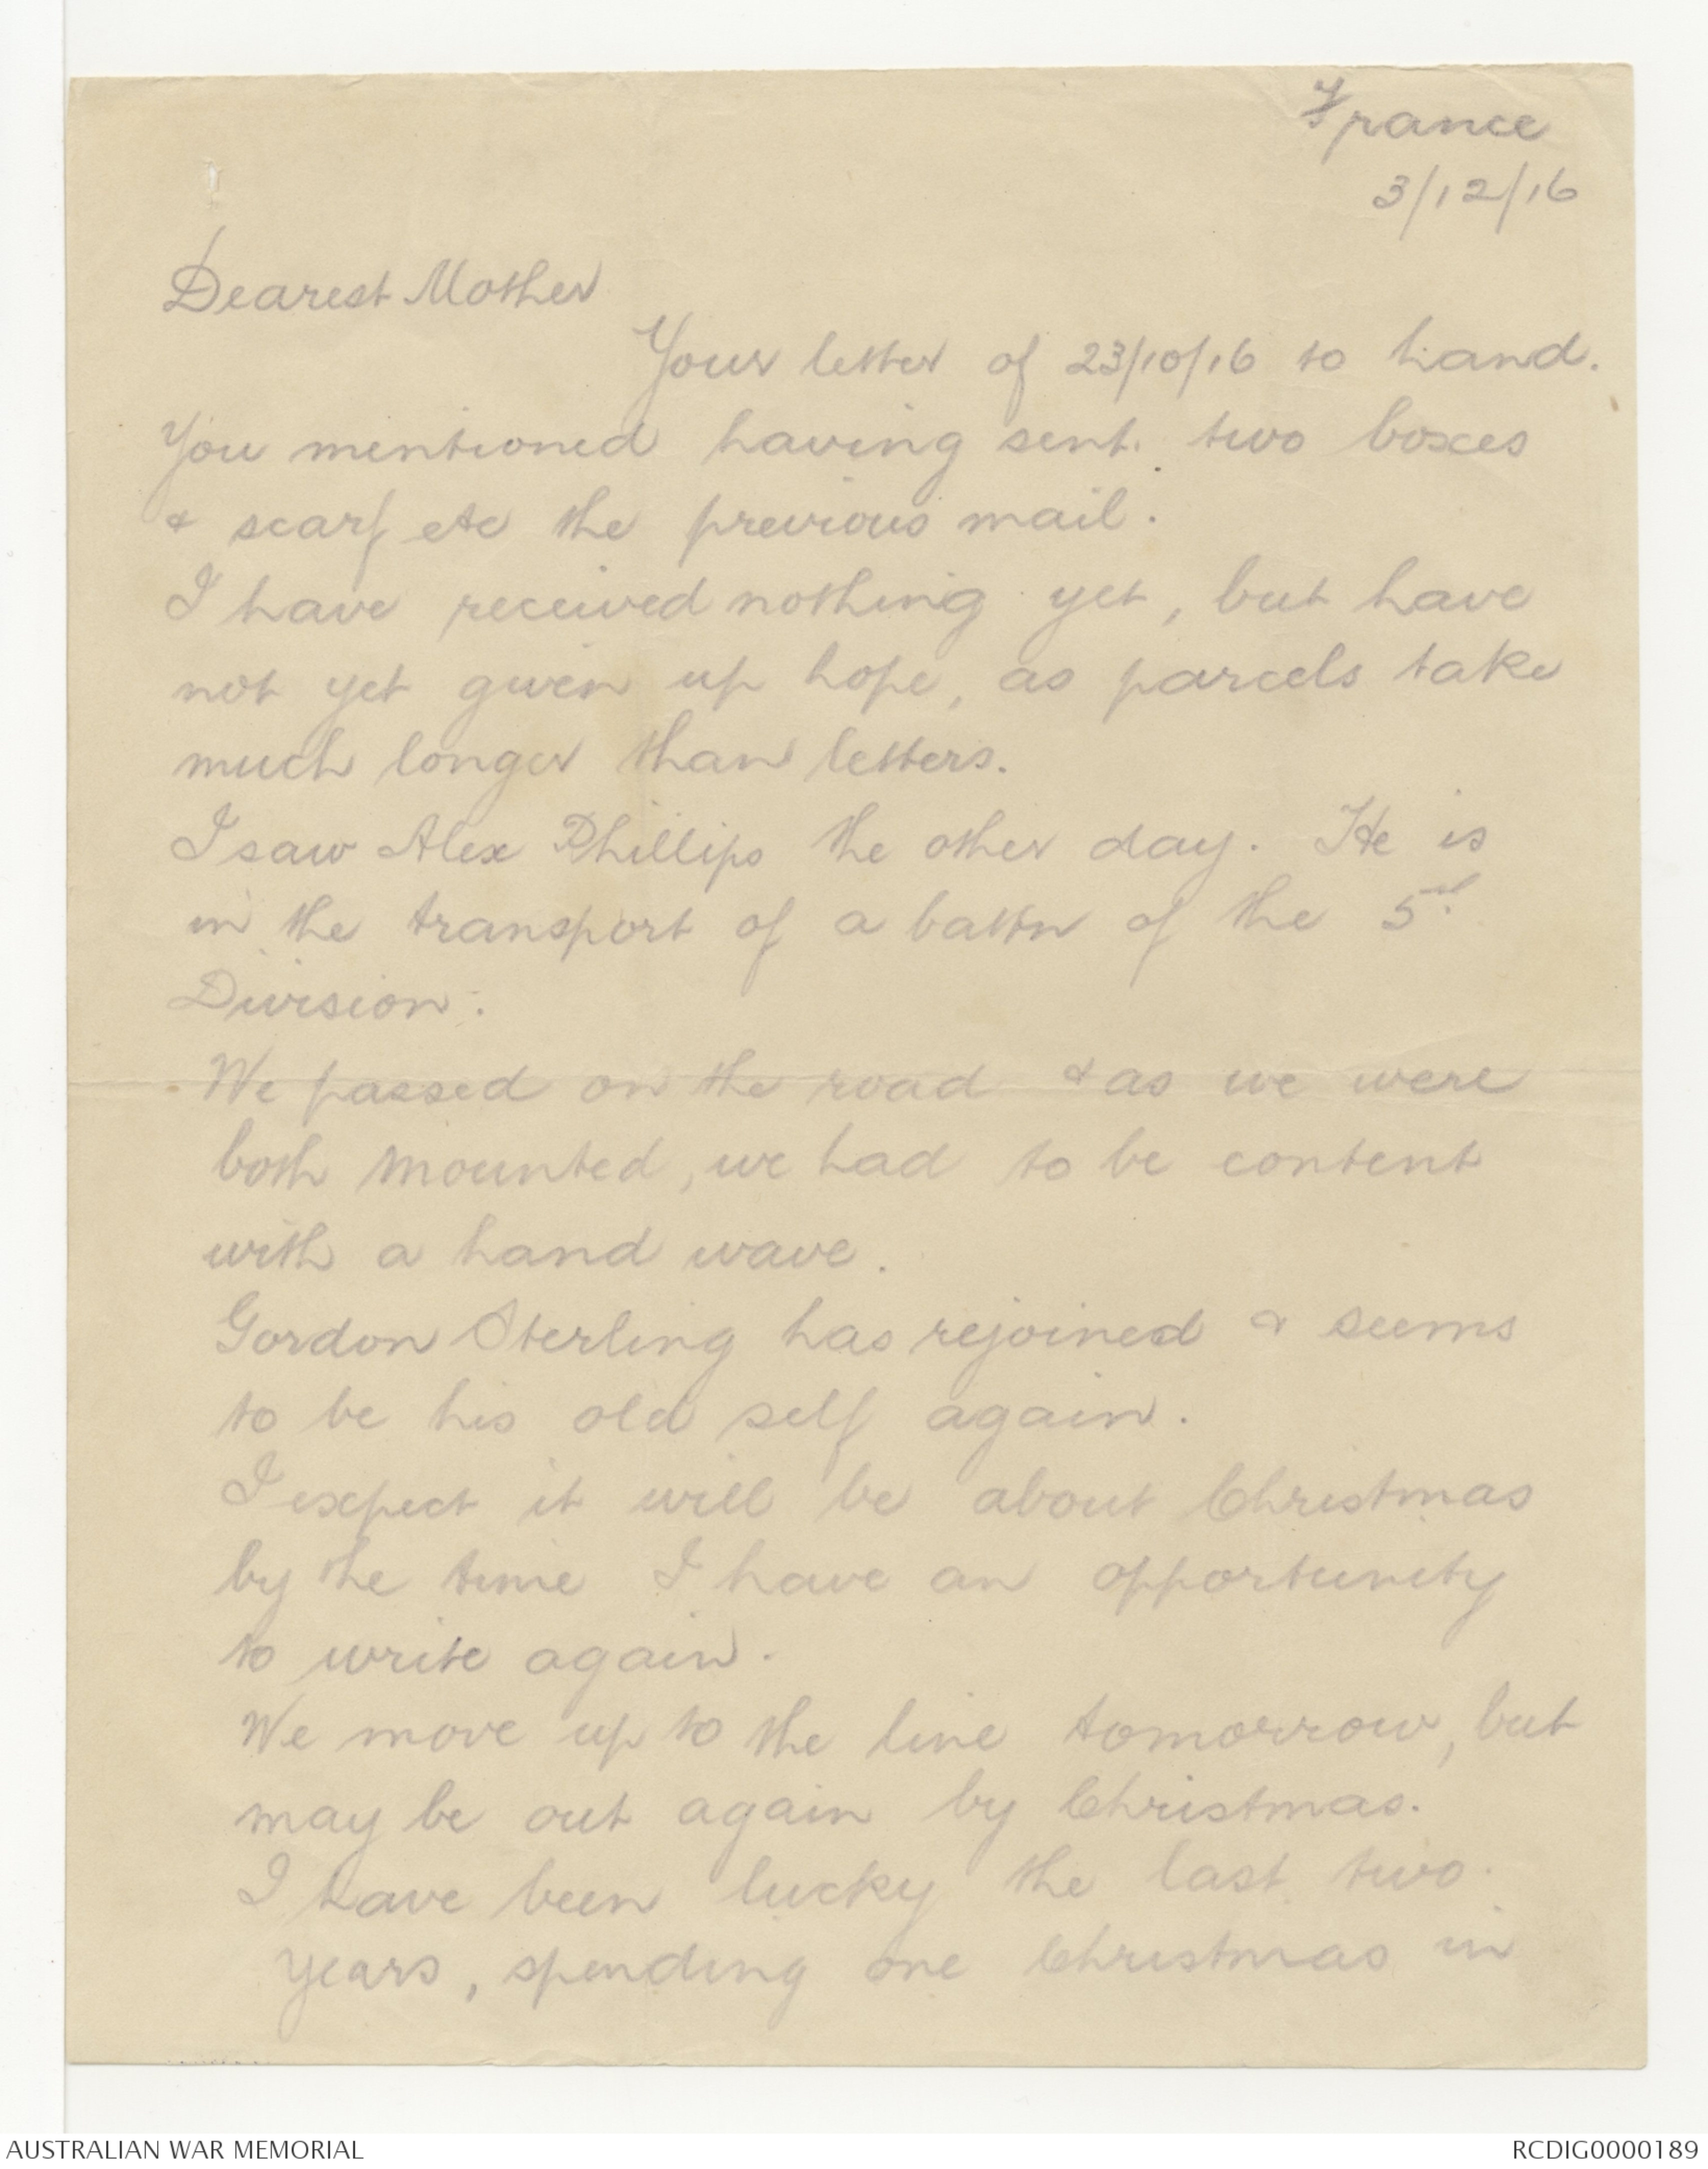 France
3/12/16
Dearest Mother
Your letter of 23/10/16 to hand.
You mentioned having sent two boxes
& scarf etc the previous mail.
I have received nothing yet, but have
not yet given up hope, as parcels take
much longer than letters.
I saw Alex Phillips the other day. He is
in the transport of a battn of the 5th
Division.
We passed on the road & as we were
both mounted, we had to be content
with a hand wave.
Gordon Sterling has rejoined & seems
to be his old self again.
I expect it will be about Christmas
by the time I have an opportunity
to write again.
We move up to the line tomorrow, but
may be out again by Christmas.
I have been lucky the last two
years, spending one Christmas in
AUSTRALIAN WAR MEMORIAL
RCDIG0000189